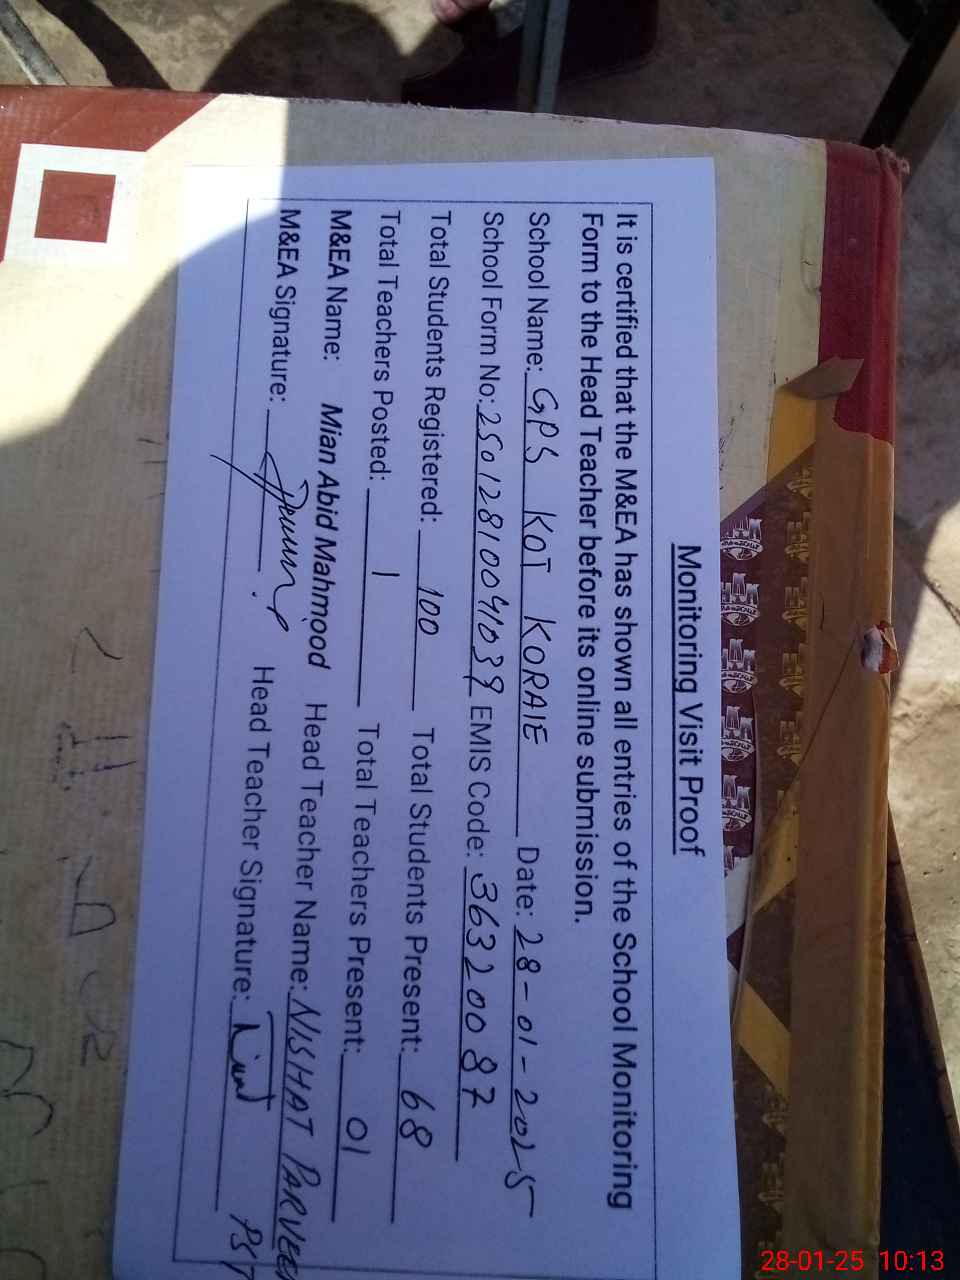 Monitoring Visit Proof
It is certified that the M&EA has shown all entries of the School Monitoring
Form to the Head Teacher before its online submission.
School Name: GPS KOT KORAIE Date: 28-01-2025
School Form No: 25012810094039 EMIS Code: 36320087
Total Students Registered: 100 Total Students Present: 68
Total Teachers Posted: 1 Total Teachers Present: 01
M&EA Name: Mian Abid Mahmood Head Teacher Name: NISHAT PARVEEN
M&EA Signature: Head Teacher Signature: PST
28-01-25 10:13